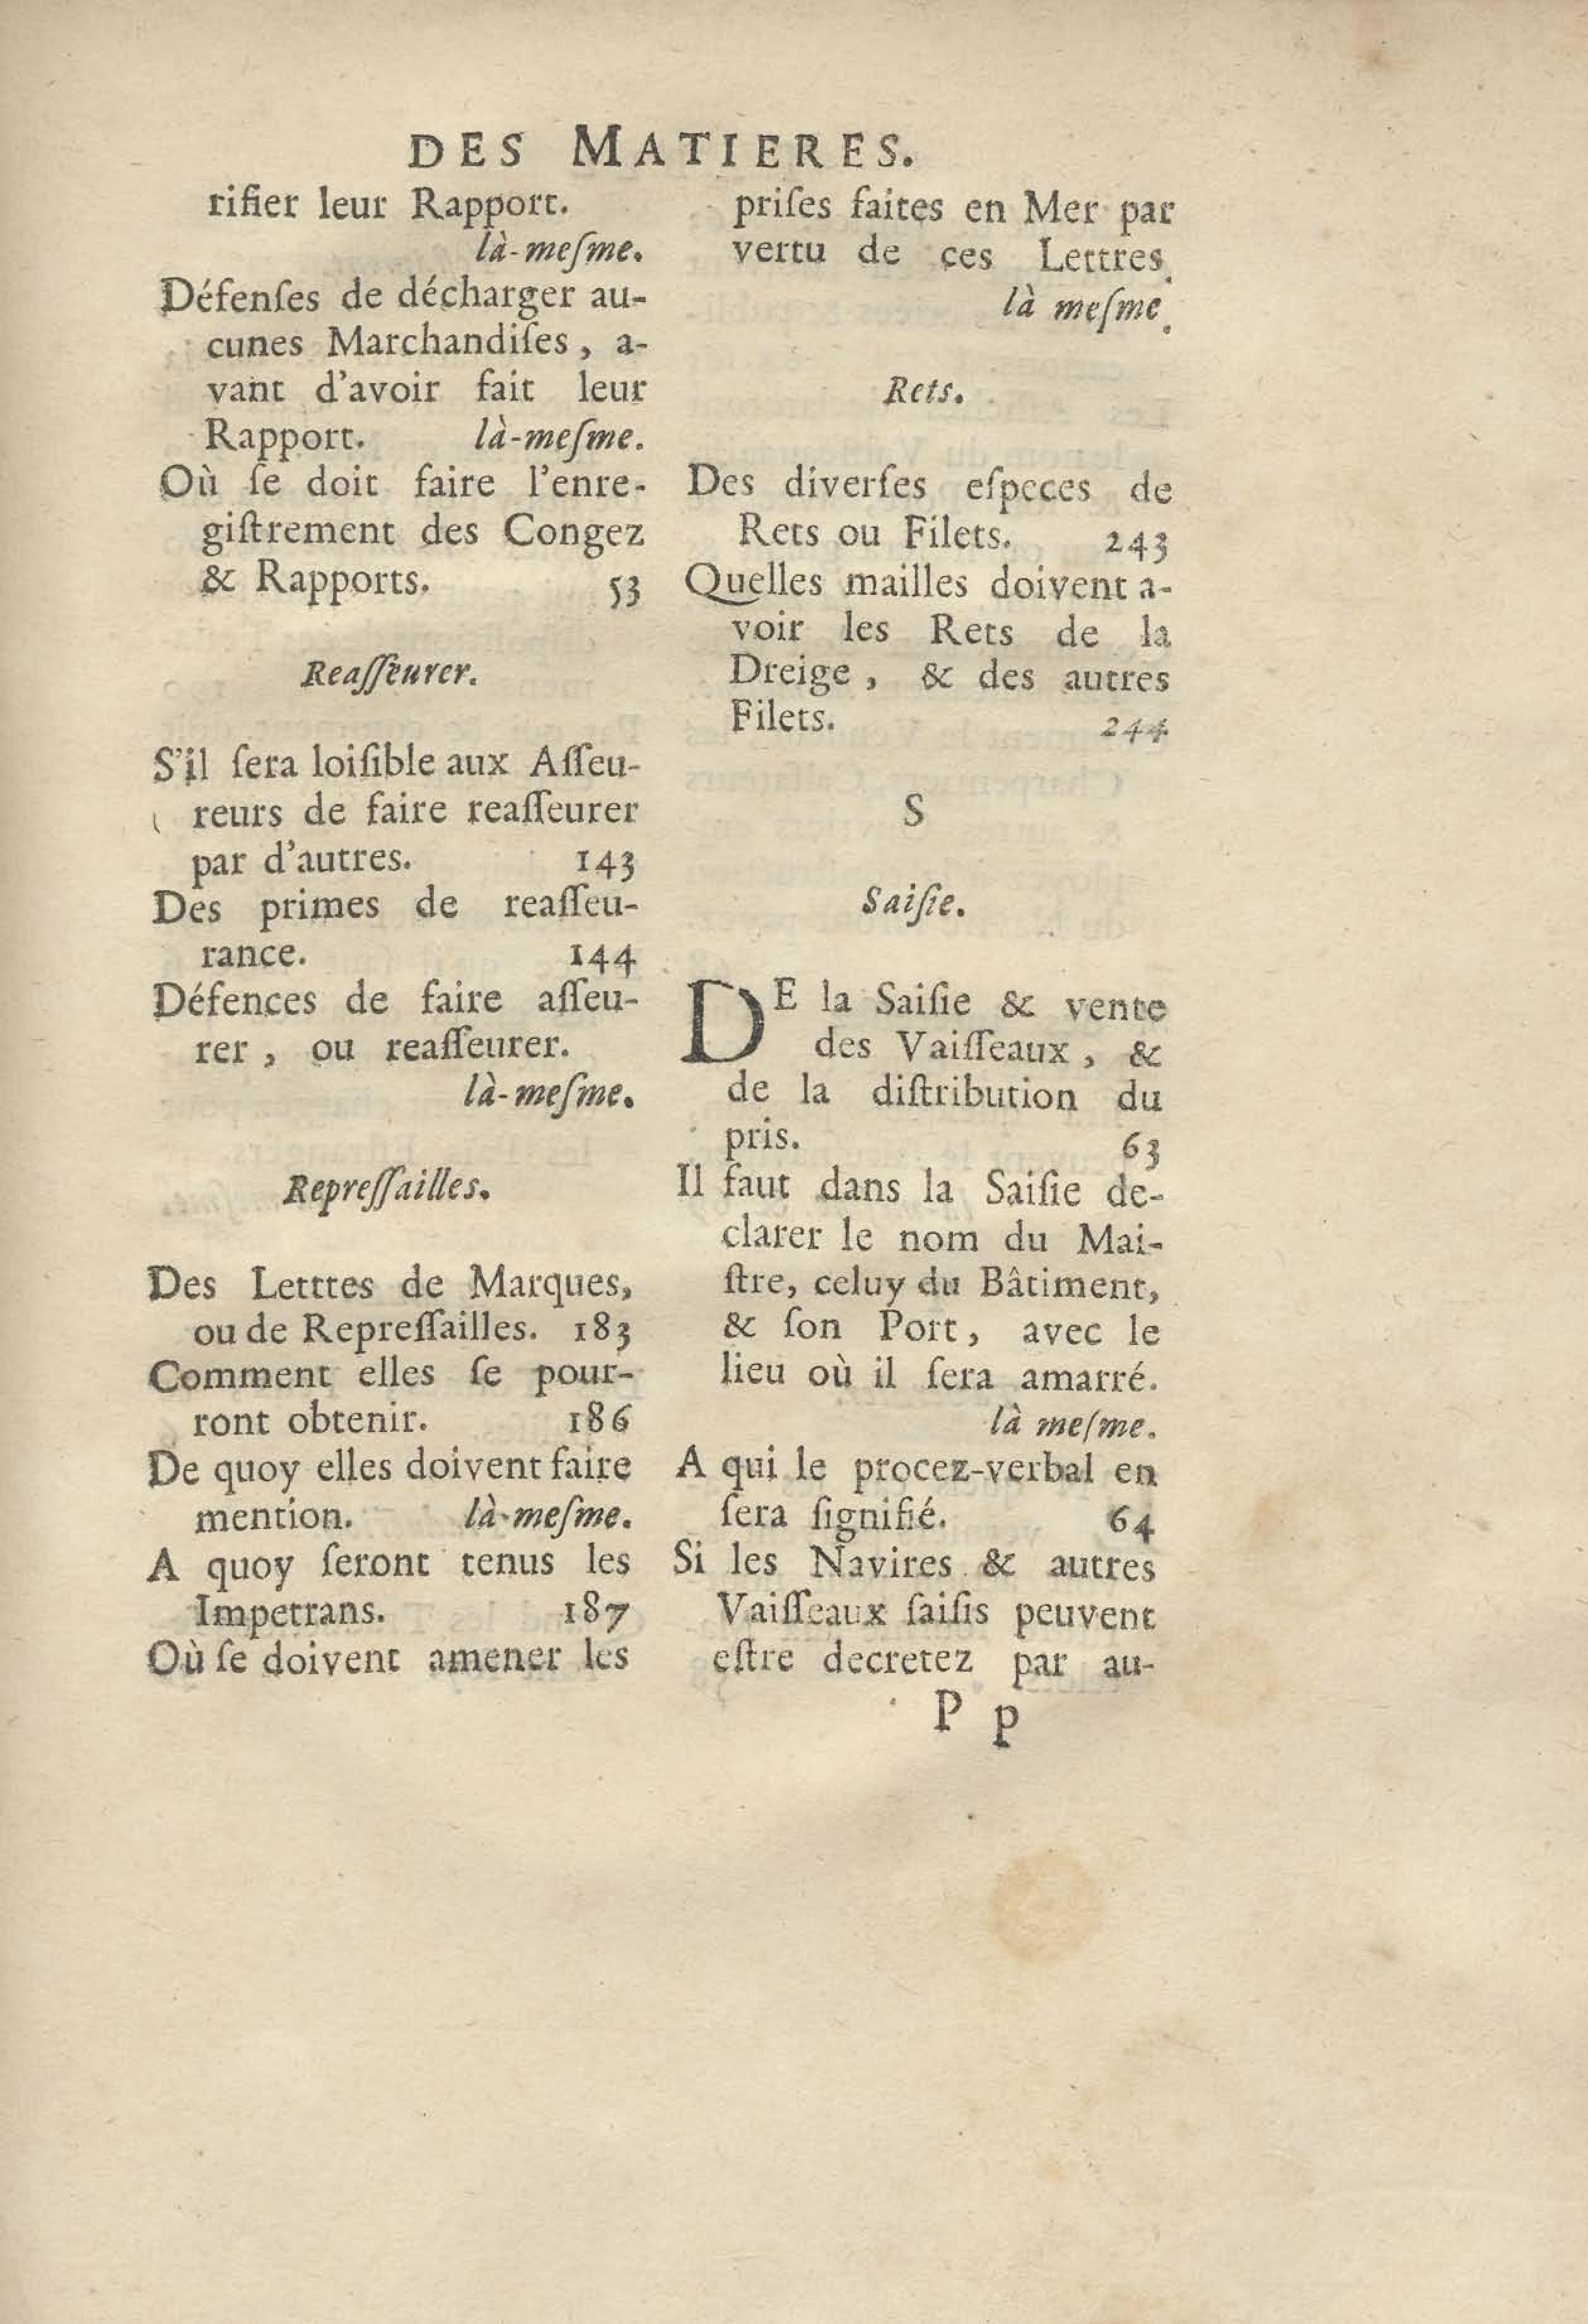 DES MATIERES.
rifier leur Rapport.
là-meſme.
Défenſes de décharger au-
cunes Marchandiſes, a-
vant d'avoir fait leur
Rapport. là-meſme.
Où ſe doit faire l'enre-
giſtrement des Congez
& Rapports. 53
Reaſſeurer.
S'il ſera loiſible aux Aſſeu-
reurs de faire reaſſeurer
par d'autres. 143
Des primes de reaſſeu-
rance. 144
Défences de faire aſſeu-
rer, ou reaſſeurer.
là-meſme.
Repreſſailles.
Des Letttes de Marques,
ou de Repreſſailles. 183
Comment elles ſe pour-
ront obtenir. 186
De quoy elles doivent faire
mention. là-meſme.
A quoy ſeront tenus les
Impetrans. 187
Où ſe doivent amener les
priſes faites en Mer par
vertu de ces Lettres.
là meſme.
Rets.
Des diverſes eſpeces de
Rets ou Filets. 243
Quelles mailles doivent a-
voir les Rets de la
Dreige, & des autres
Filets. 244
S
Saiſie.
DE la Saiſie & vente
des Vaiſſeaux, &
de la diſtribution du
pris. 63
Il faut dans la Saiſie de-
clarer le nom du Mai-
ſtre, celuy du Bâtiment,
& ſon Port, avec le
lieu où il ſera amarré.
là meſme.
A qui le procez-verbal en
ſera ſignifié. 64
Si les Navires & autres
Vaiſſeaux ſaiſis peuvent
eſtre decretez par au-
P p